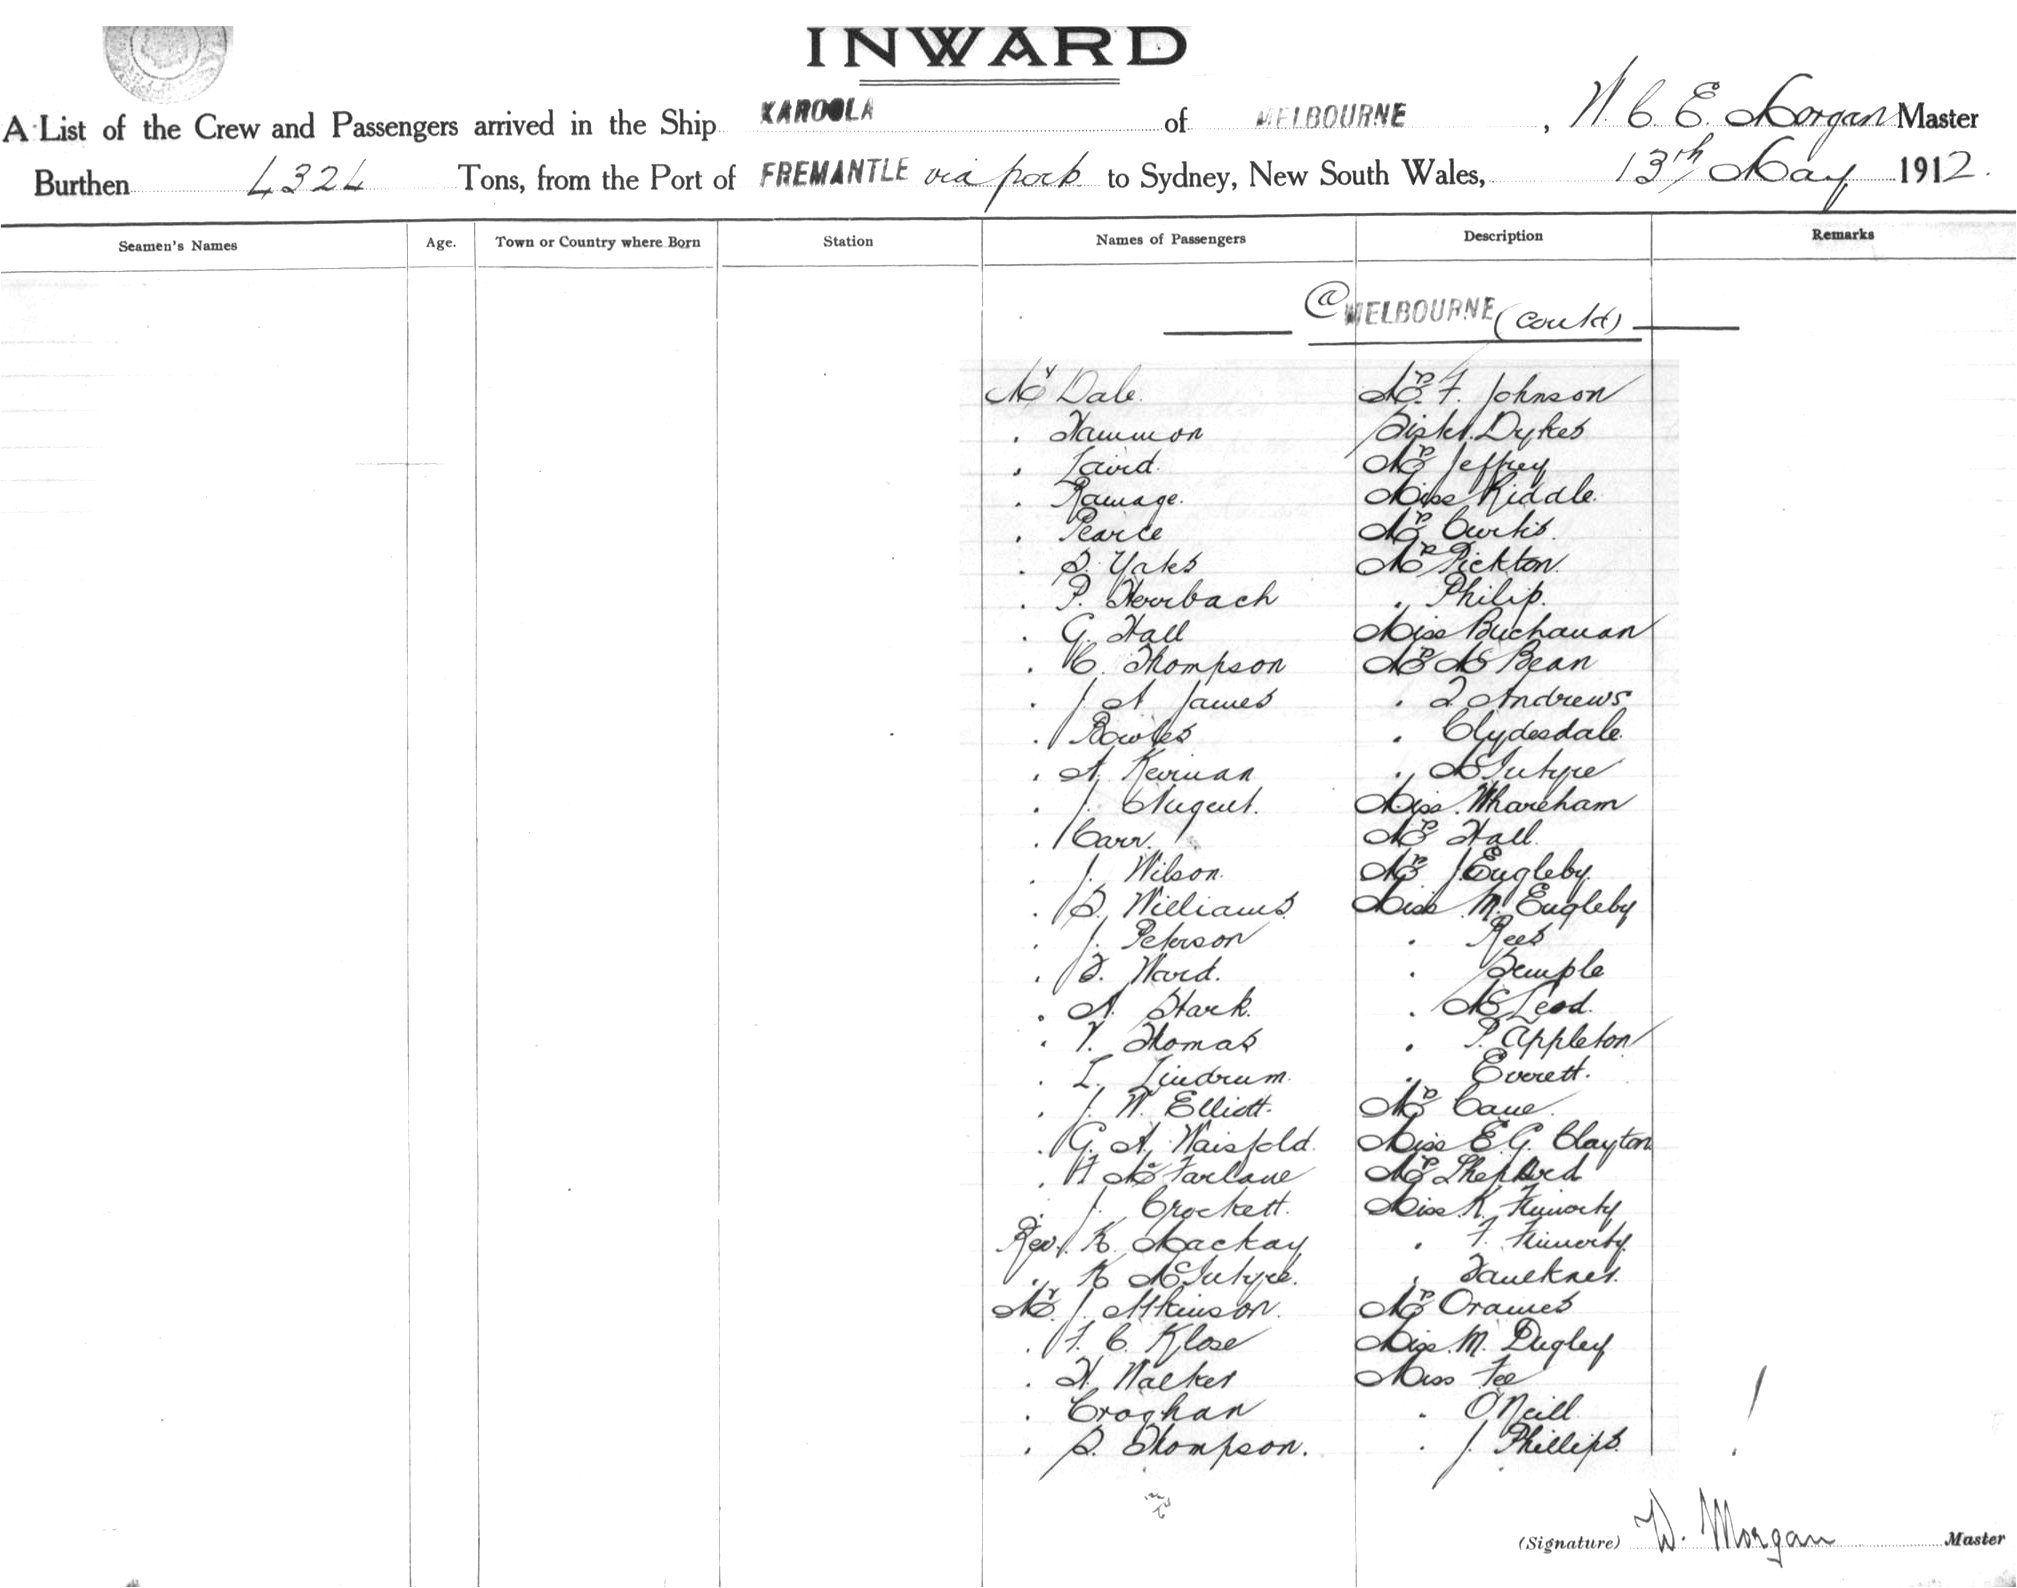 INWARD
A List of the Crew and Passengers arrived in the Ship KAROOLA of MELBOURNE, W. C. E. Morgan Master
Burthen 4324 Tons, from the Port of FREMANTLE via ports to Sydney, New South Wales, 13th May 1912.
Seamen's Names Age. Town or Country where Born Station Names of Passengers Description Remarks
@ MELBOURNE (contd)
Mr Dale. Mrs F. Johnson
. Hammon Sister Dykes
. Laird. Mrs Jeffrey
. Ramage. Miss Riddle.
. Pearce Mrs Curtis.
. S. Yates Mrs Pickton.
. P. Herrbach . Philip.
. G. Hall Miss Buchanan
. C. Thompson Mrs McBean
. J. A. James . 2 Andrews
. Bowles . Clydesdale.
. A. Kernan . McIntyre
. J. Nugent. Miss Whareham
. Carr. Mrs Hall.
. J. Wilson. Mrs J. Engleby.
. S. Williams. Miss M. Engleby
. J. Peterson . Rees
. F. Ward. . Semple
. A. Stark. . McLeod.
. V. Thomas . P. Appleton
. L. Lindrum. . Everett.
. J. W. Elliott. Mrs Cane.
. G. A. Miss E. G. Clayton
. H McFarlane Mrs Shepherd
. J. Crockett. Miss K.
Rev. K. Mackay . F.
. K McIntyre. . Faulkner.
Mr. J. Atkinson. Mrs Orames
. F. C. Klose Miss M.
. H. Walker Miss Fee
. Croghan . O'Neill.
. S. Thompson. . J. Phillips.
(Signature) W. Morgan Master